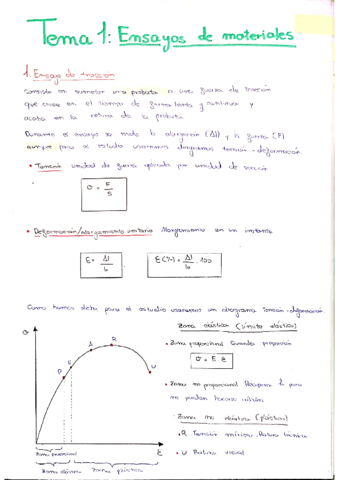 Tema 1: Ensayos de materiales
1. Ensayo de tracción
Consiste en someter una probeta a una fuerza de tracción
que crece en el tiempo de forma lenta y continua y
acaba en la rotura de la probeta
Durante el ensayo se mide la alargación (Δl) y la fuerza (F)
aunque para el estudio usaremos diagramas tensión-deformación.
• Tensión unidad de fuerza aplicada por unidad de sección
σ = F/S
• Deformación/alargamiento unitario Alargamiento en un instante
ε = Δl/l₀
ε(%) = Δl/l₀ · 100
Como hemos dicho para el estudio usaremos un diagrama tensión-deformación.
Zona elástica (límite elástico)
• Zona proporcional Cuando proporción
σ = E ε
• Zona no proporcional Recupera l₀ pero
no pueden
Zona no elástica (plástica)
• R Tensión máxima. Rotura técnica
• U Rotura visual
σ
P
E
R
U
ε
Zona proporcional
Zona elástica
Zona plástica